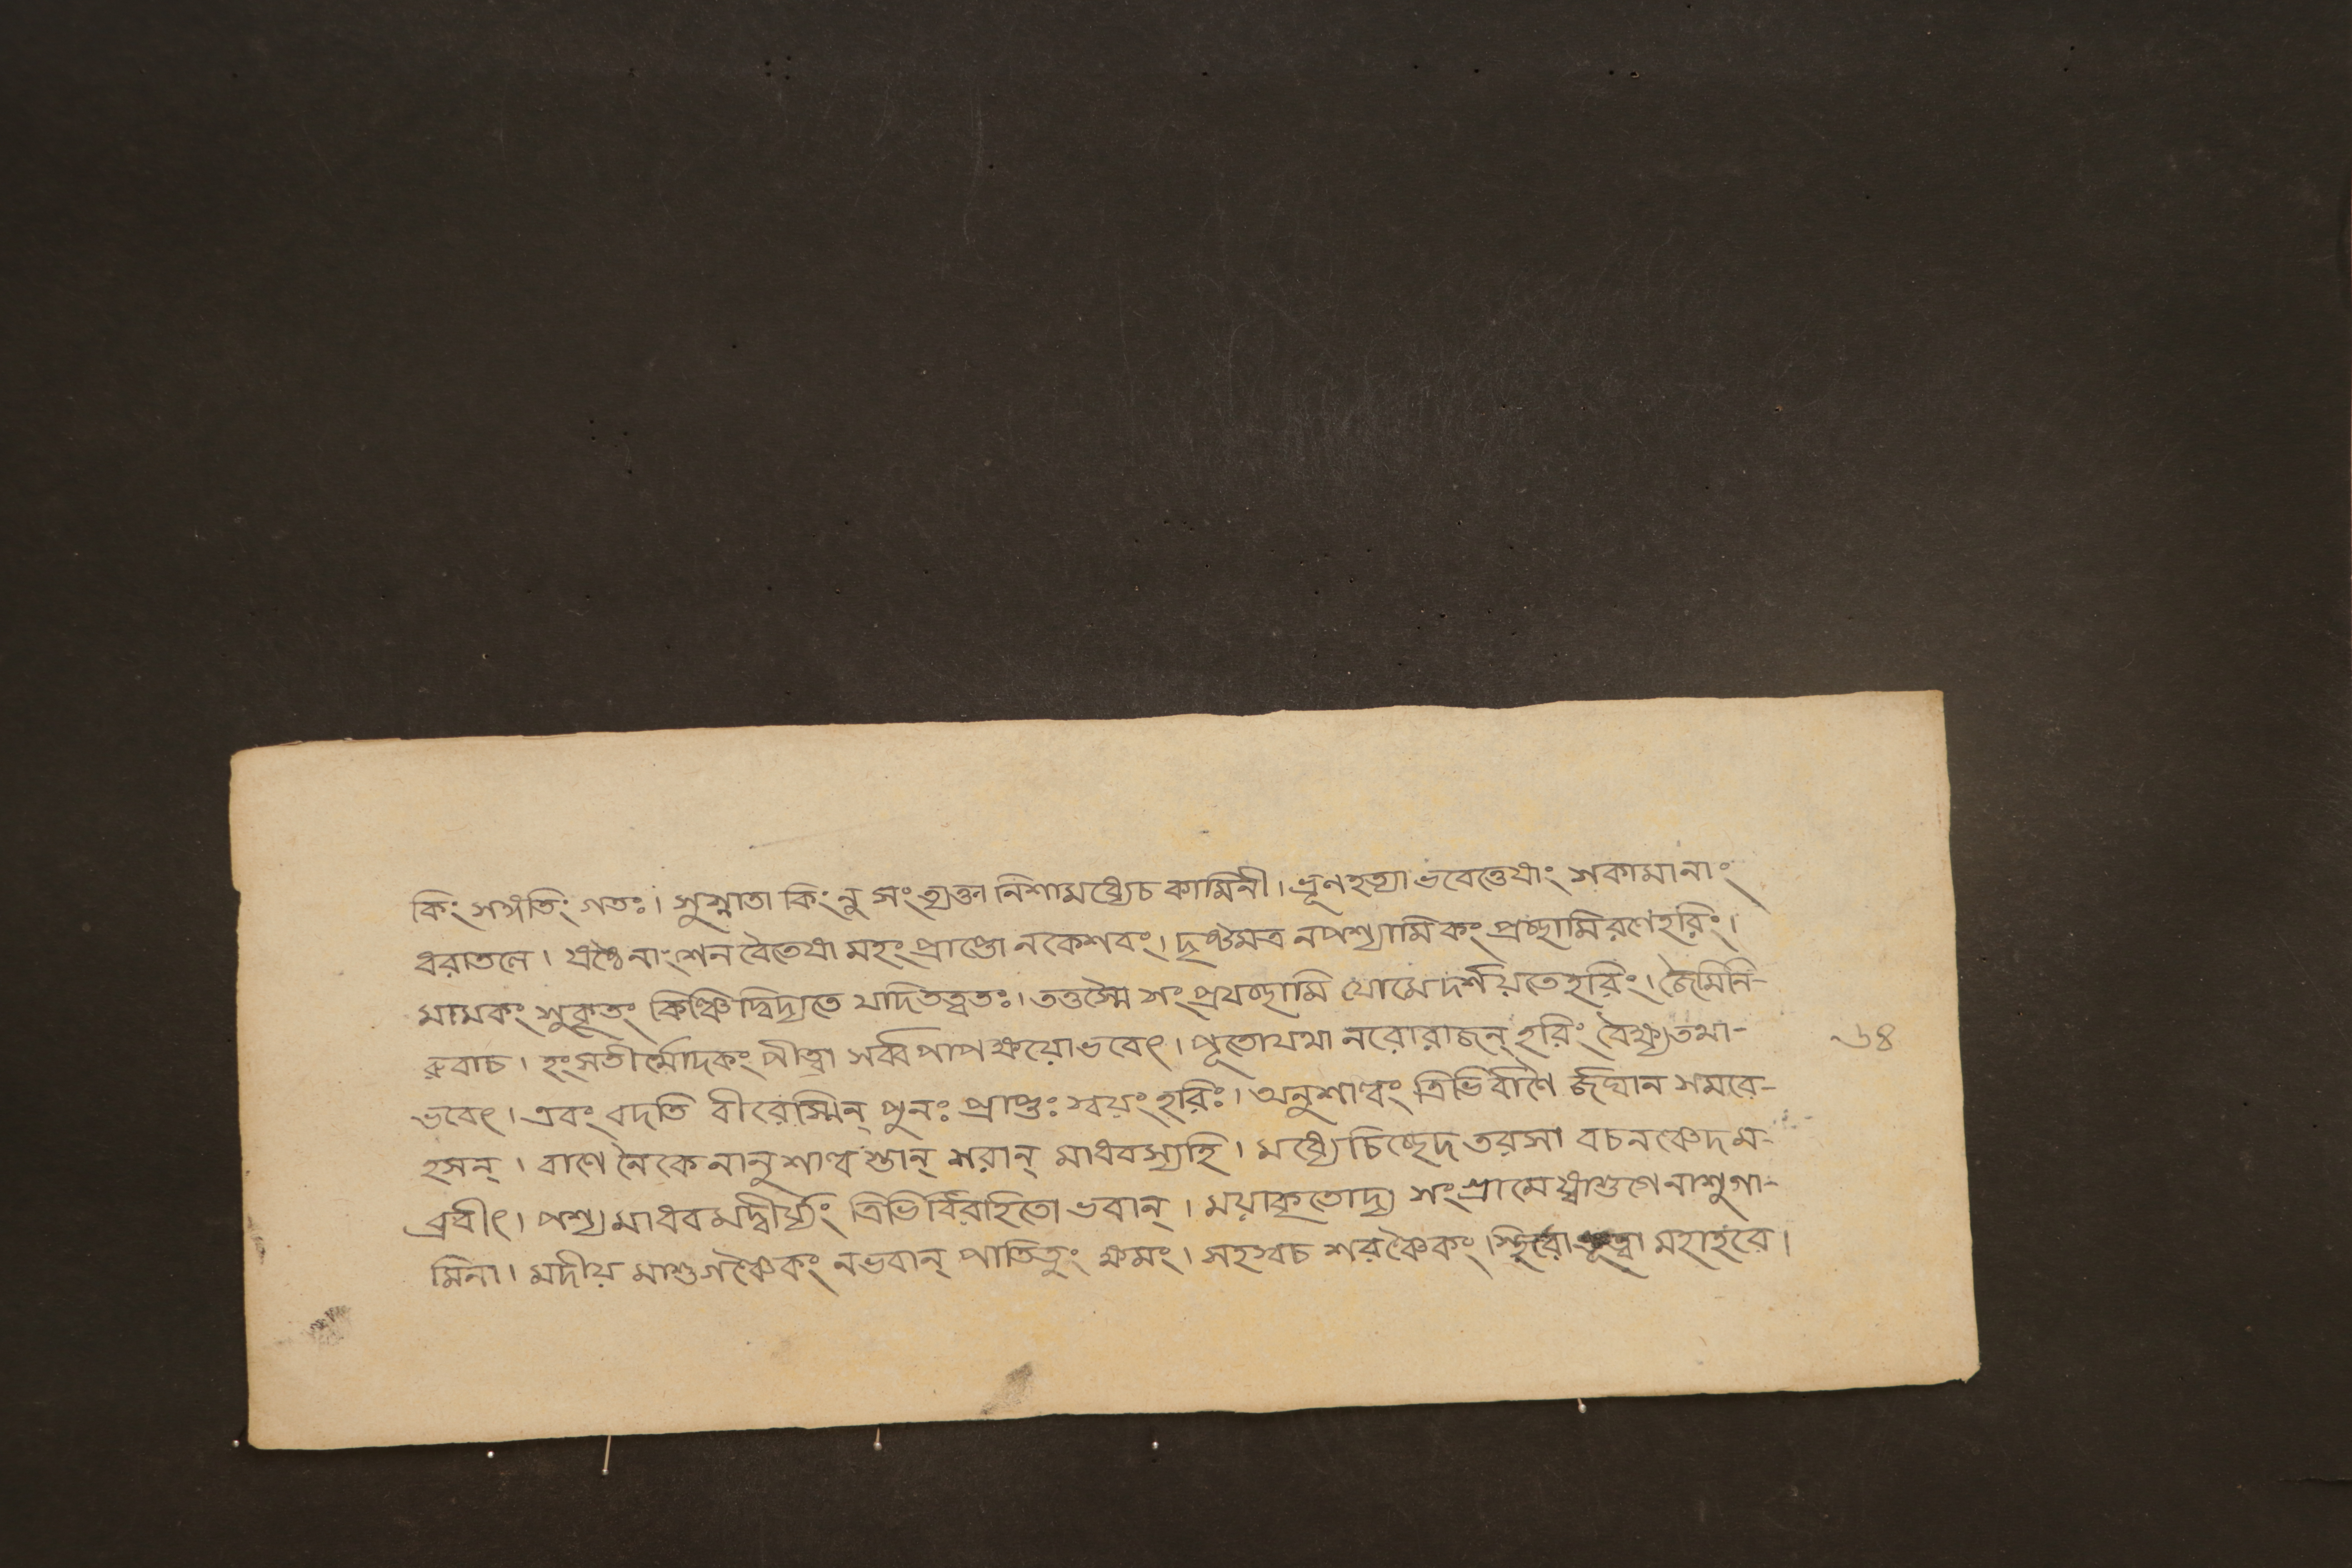 কিং সঙ্গতিং গতঃ। সুস্নাতা কিংনু সংত্যক্তা নিশামধ্যেচ কামিনী। ভ্রূনহত্যা ভবেত্তেষাং সকামানাং
ধরাতলে। ষষ্ঠেনাংশেন বৈতেষা মহং প্রাপ্তো নকেশবং। দৃষ্টমত্র নপশ্যামি কং প্রচ্ছামি রণেহরিং।
মামকং সুকৃতং কিঞ্চিদ্বিদ্যতে যদিতত্বতঃ। তত্তস্মৈ সংপ্রযচ্ছামি যোমেদর্শয়তেহরিং। জৈমিনি-
রুবাচ। হংসতীর্থোদকং পীত্বা সর্ব্বপাপক্ষয়োভবেৎ। পূতোযথা নরোরাজন্ হরিং বৈক্ষ্যতথা-
ভবেৎ। এবং বদতি বীরেস্মিন্ পুনঃ প্রাপ্তঃ স্বয়ং হরিঃ। অনুশাল্বং ত্রিভির্বাণৈ র্জঘান সমরে-
হসন্। বাণে নৈকেনানুশাল্ব স্তান্ শরান্ মাধবস্যহি। মধ্যেচিচ্ছেদ তরসা বচনঞ্চেদম-
ব্রবীৎ। পশ্য মাধব মদ্বীর্য্যং ত্রিভির্বিরহিতো ভবান্। ময়াকৃতোদ্য সংগ্রামে ষ্বাশুগেনাশুগা-
মিনা। মদীয় মাশুগঞ্চৈকং নভবান্ পাতিতুং ক্ষমং। সহস্বচ শরঞ্চৈকং স্থিরো ভূত্বা মহাহরে।
৬৪